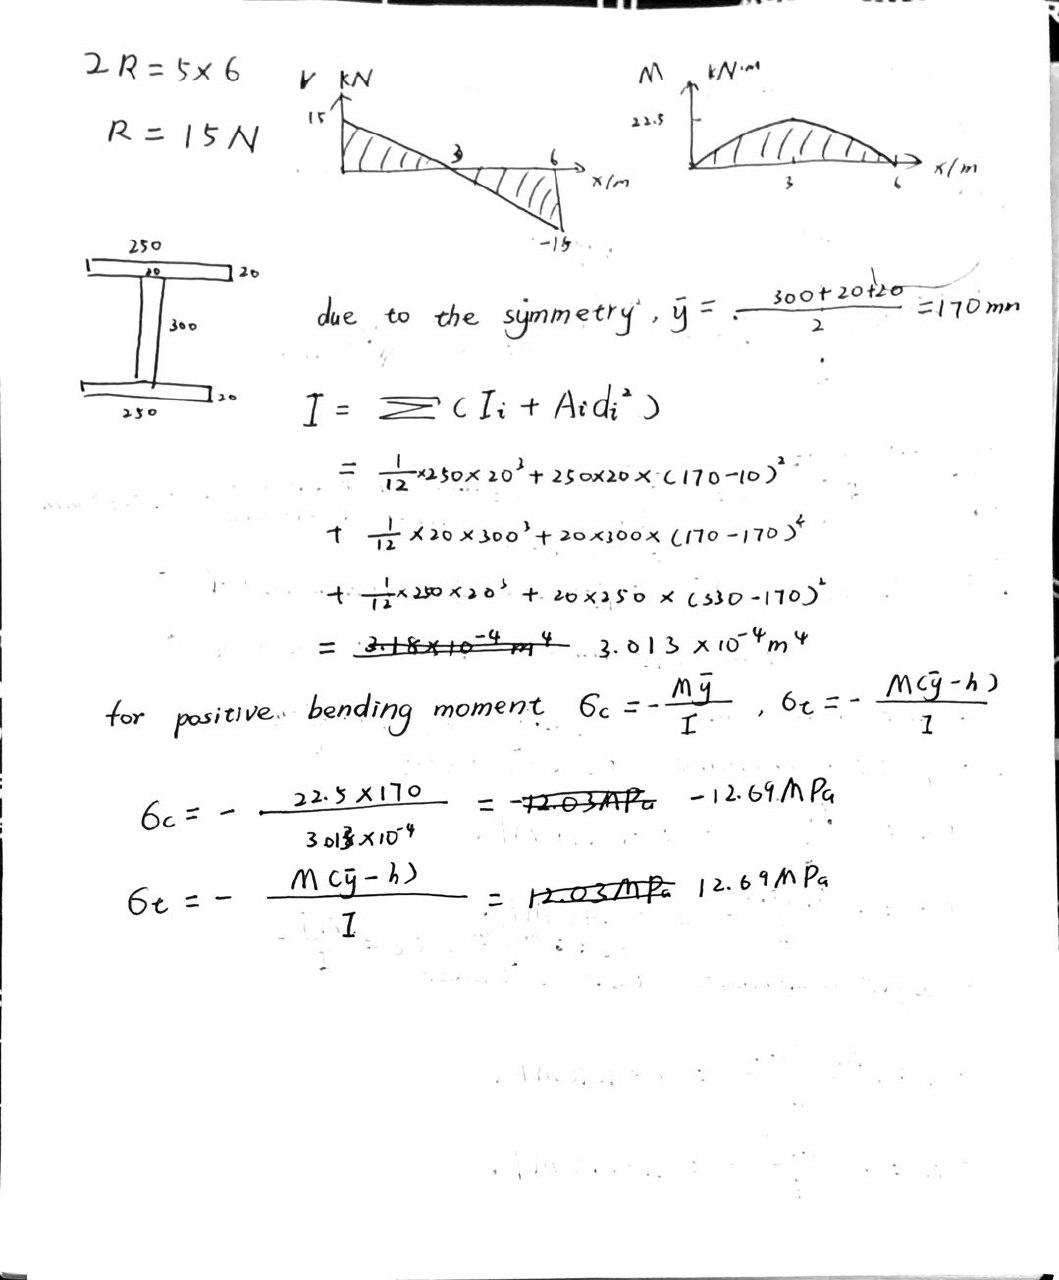 2R = 5×6
R = 15N
V kN
15
3
6
x/m
-15
M kN·m
22.5
3
6
x/m
250
20
20
300
20
250
due to the symmetry, ȳ = (300+20+20)/2 = 170 mm
I = Σ(Ii + Aidi²)
= 1/12 ×250×20³ + 250×20×(170-10)²
+ 1/12 ×20×300³ + 20×300×(170-170)²
+ 1/12 ×250×20³ + 20×250×(330-170)²
= 3.18×10⁻⁴ m⁴ 3.013×10⁻⁴ m⁴
for positive bending moment 6c = - Mȳ/I , 6t = - M(ȳ-h)/I
6c = - 22.5×170 / 3.013×10⁻⁴ = -12.03MPa -12.69MPa
6t = - M(ȳ-h)/I = 12.03MPa 12.69MPa